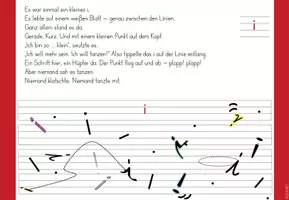 Es war einmal ein kleines i.
Es lebte auf einem weißen Blatt – genau zwischen den Linien.
Ganz allein stand es da.
Gerade. Kurz. Und mit einem kleinen Punkt auf dem Kopf.
„Ich bin so ... klein“, seufzte es.
„Ich will mehr sein. Ich will tanzen!“ Also tippelte das i auf der Linie entlang.
Ein Schritt hier, ein Hüpfer da. Der Punkt flog auf und ab – plopp! plopp!
Aber niemand sah es tanzen.
Niemand klatschte. Niemand tanzte mit.
i
i